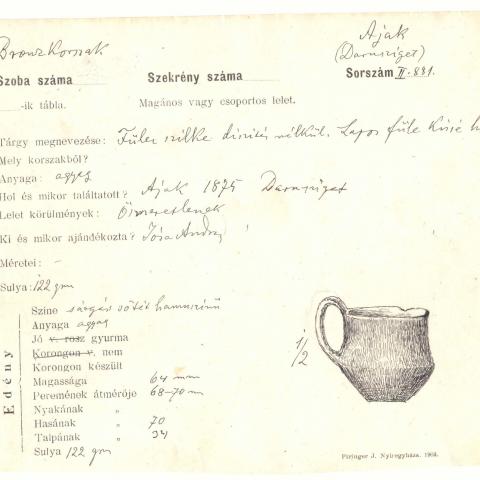 Bronz Korszak
Ajak
(Darusziget)
Szoba száma
Szekrény száma
Sorszám II. 831.
-ik tábla.
Magános vagy csoportos lelet.
Tárgy megnevezése: Füles szilke díszítés nélkül. Lapos füle kissé
Mely korszakból?
Anyaga: agyag
Hol és mikor találtatott? Ajak 1875 Darusziget
Lelet körülmények: Ösmeretlenek
Ki és mikor ajándékozta? Jósa András
Méretei: -
Sulya: 122 gm
Edény
Szine sárgás sötét hamuszínű
Anyaga agyag
Jó v. rosz gyurma
Korongon v. nem
Korongon készült
Magassága 64 mm
Peremének átmérője 68-70 mm
Nyakának "
Hasának " 70
Talpának " 34
Sulya 122 gm
1/2
Piringer J. Nyiregyháza, 1904.